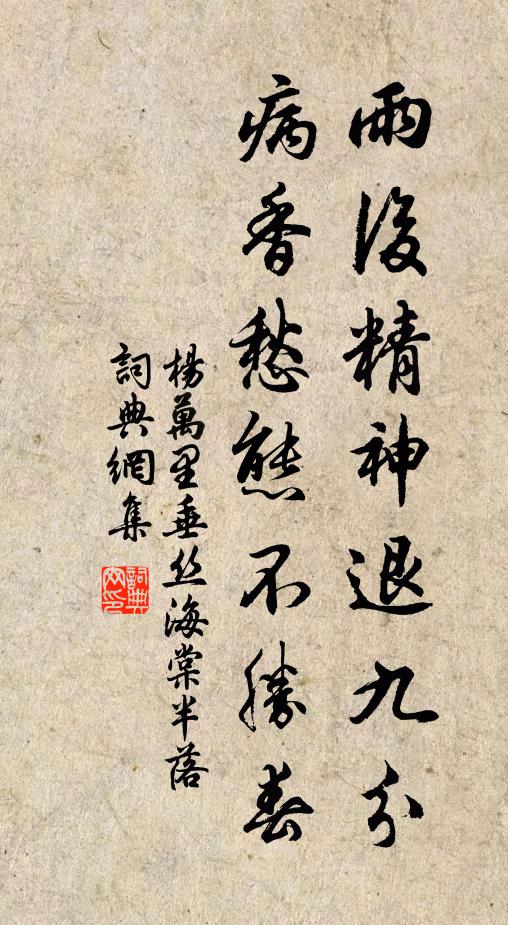 雨後精神退九分
病香愁態不勝春
楊萬里垂丝海棠半落
詞典網集
詞典网印